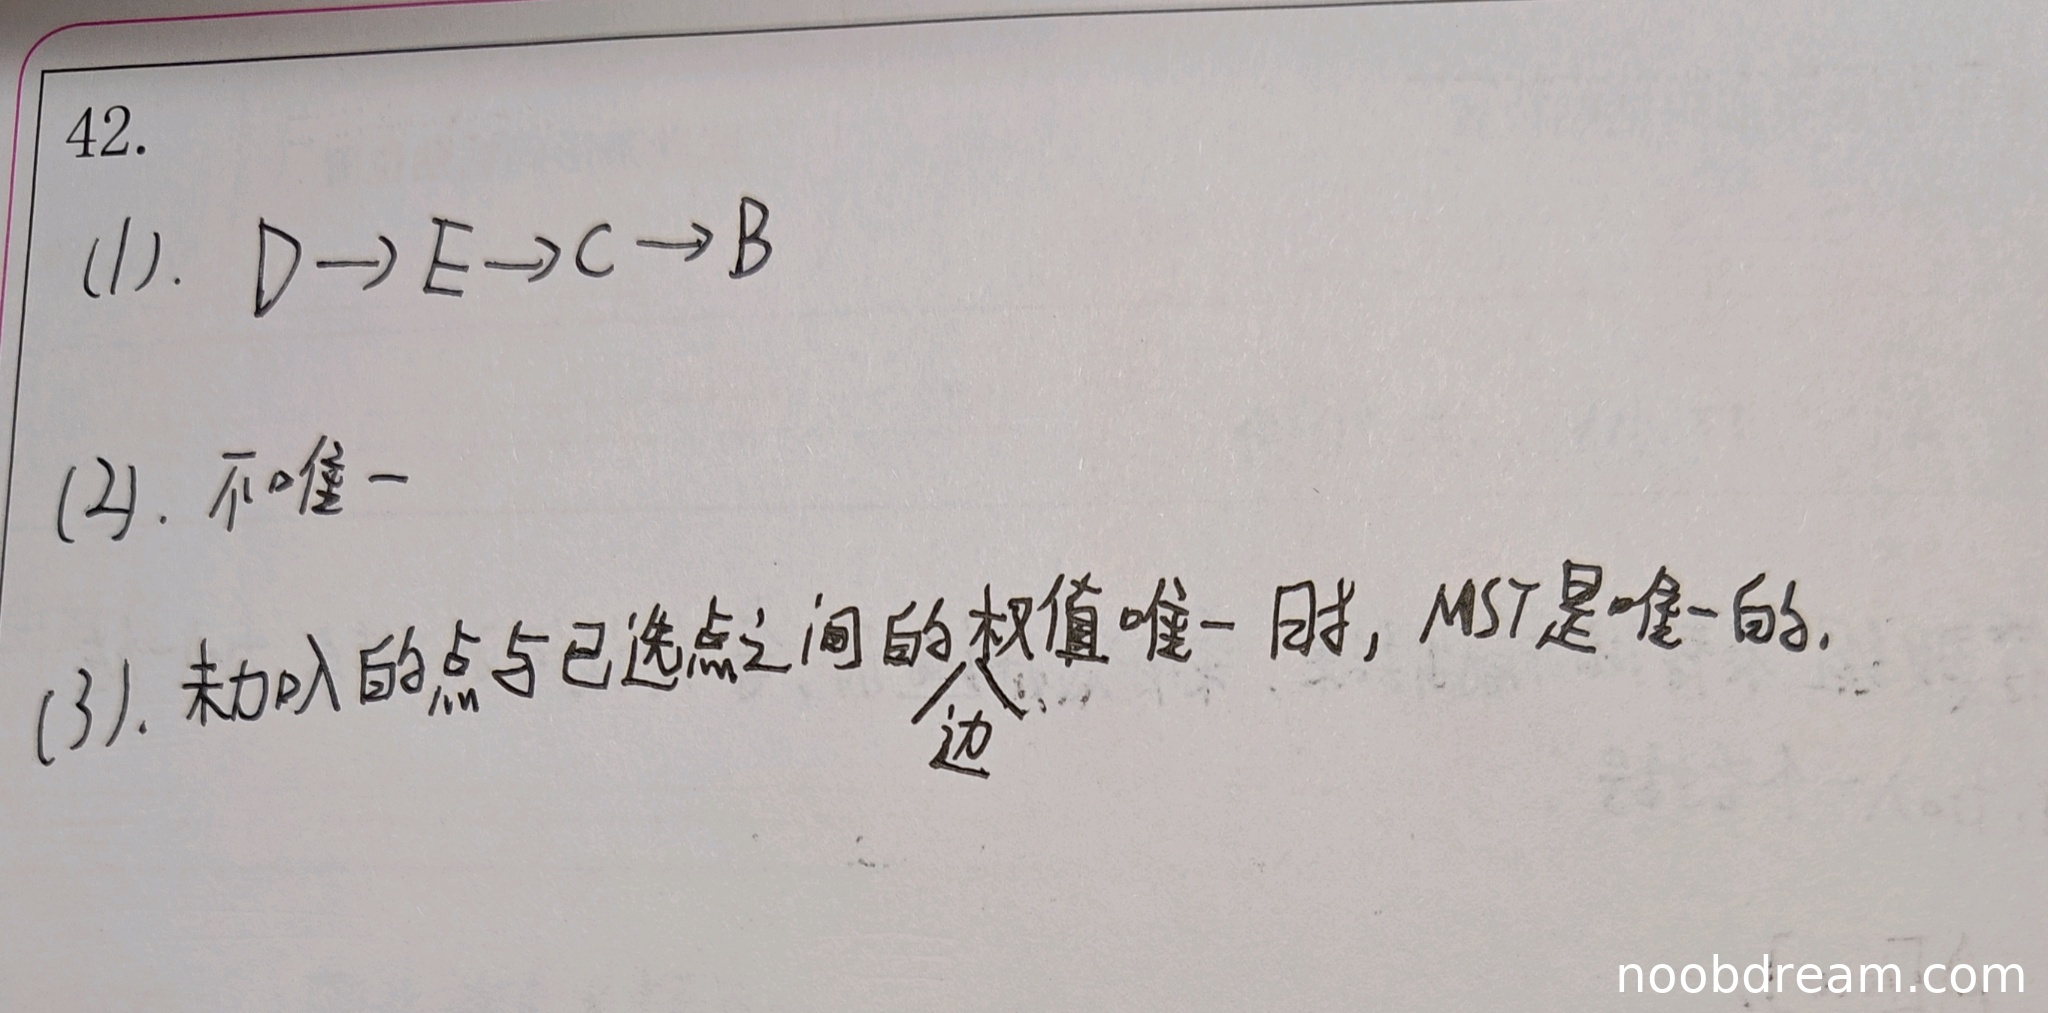 42.
(1). D→E→C→B
(2). 不唯一
(3). 未加入的点与已选点之间的边权值唯一时, MST是唯一的.
noobdream.com